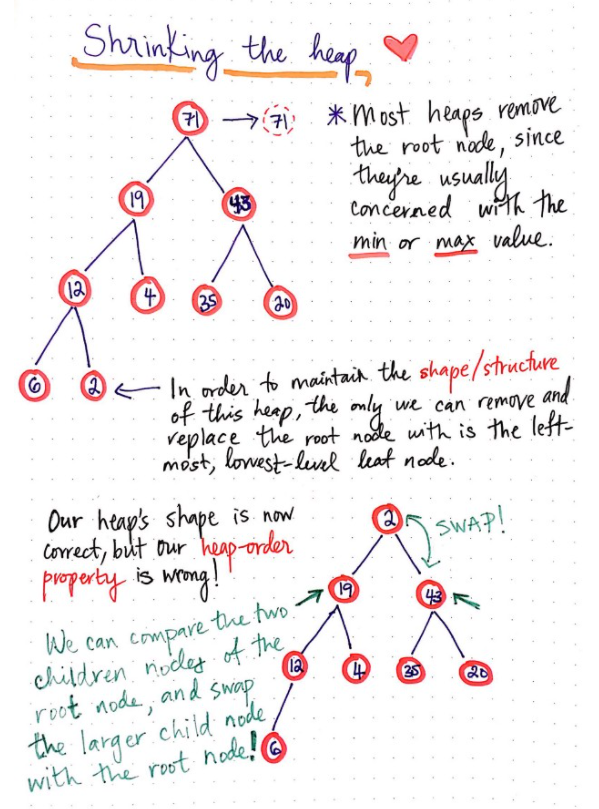 Shrinking the heap
71 → 71
19 43
12 4 35 20
6 2
* Most heaps remove
the root node, since
they're usually
concerned with the
min or max value.
← In order to maintain the shape/structure
of this heap, the only we can remove and
replace the root node with is the left-
most, lowest-level leaf node.
Our heap's shape is now
correct, but our heap-order
property is wrong!
We can compare the two
children nodes of the
root node, and swap
the larger child node
with the root node!
2 SWAP!
19 43
12 4 35 20
6